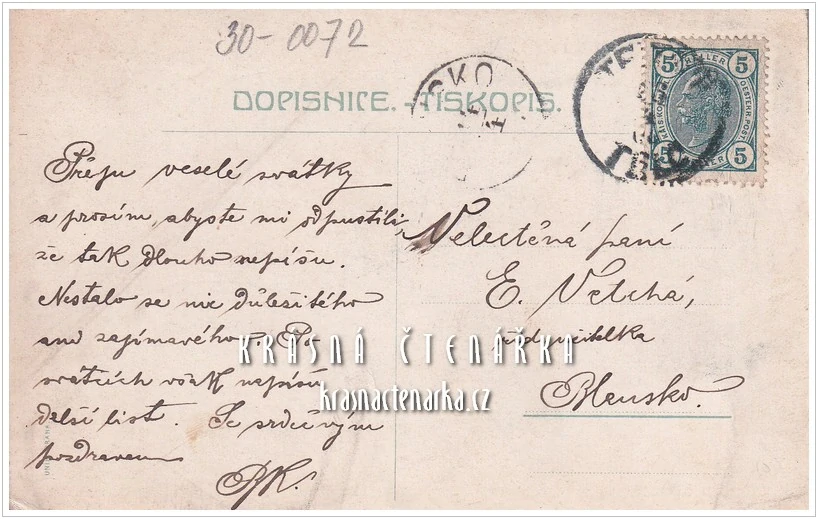 30-0072
DOPISNICE. - TISKOPIS.
SKO
5 HELLER 5
KAIS. KÖN. OESTERR. POST.
5 5
Přeju veselé svátky
a prosím, abyste mi odpustili,
že tak dlouho nepíšu.
Nestalo se nic důležitého
ani zajímavého. Po
svátcích však napíšu
delší list. Se srdečným
pozdravem
BK.
Velectěná paní
E. Vetchá,
říd. učitelka
Blansko.
KRÁSNÁ ČTENÁŘKA
krasnactenarka.cz